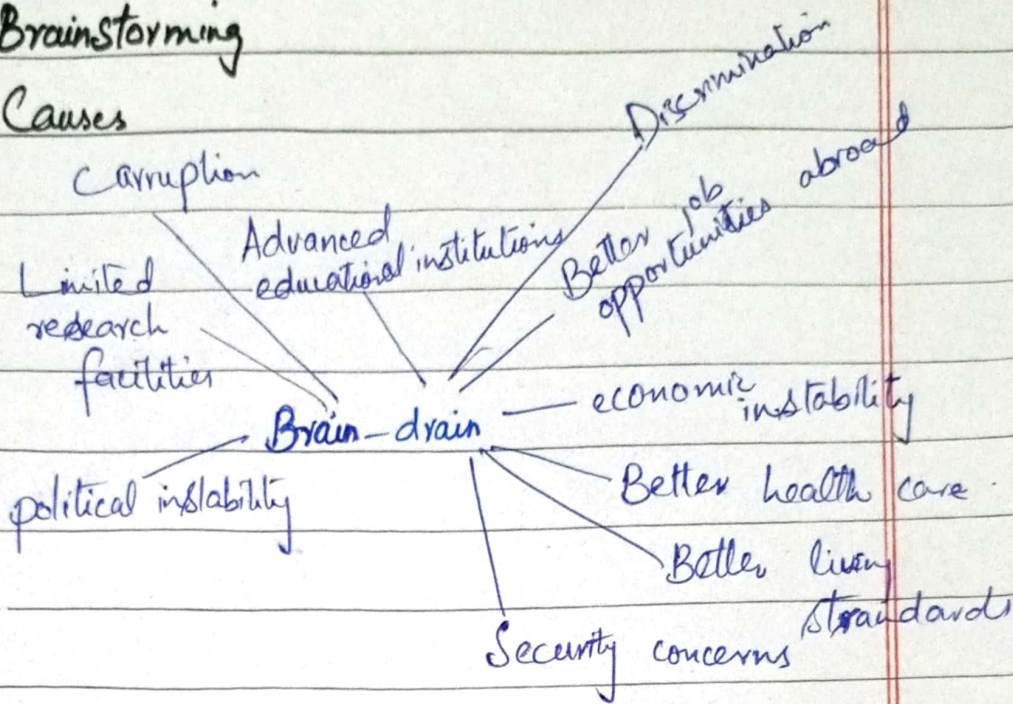 Brainstorming
Causes
Carruption
Discrimination
Advanced
educational institutions
Better job
opportunities abroad
Limited
research
facilities
economic instability
Brain-drain
political instability
Better health care
Better living
strandards
Security concerns